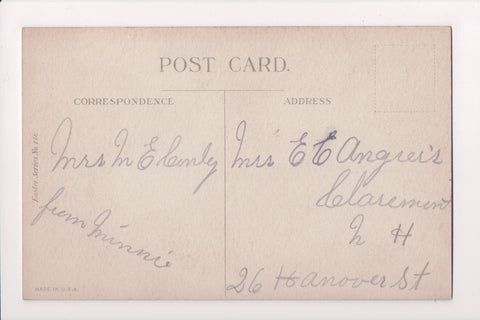 POST CARD.
CORRESPONDENCE
ADDRESS
Easter Series No.
Mrs M E Conly
from Minnie
Mrs E E Angier's
Claremont
N H
26 Hanover St
MADE IN U.S.A.